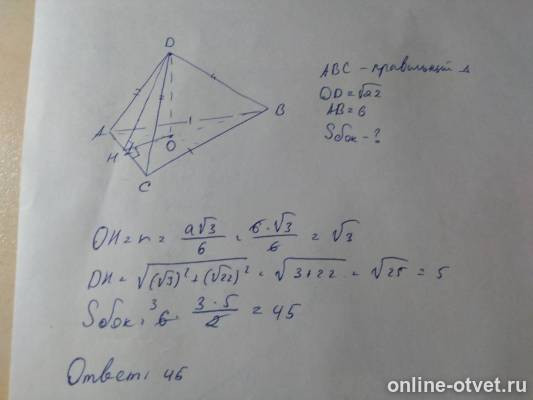 D
A
B
H
O
C
ABC - правильный Δ
OD = √22
AB = 6
Sбок - ?
OH = r = a√3/6 = 6·√3/6 = √3
DH = √(√3)² + (√22)² = √3+22 = √25 = 5
Sбок = 3 6 · 3·5/2 = 45
Ответ: 45
online-otvet.ru